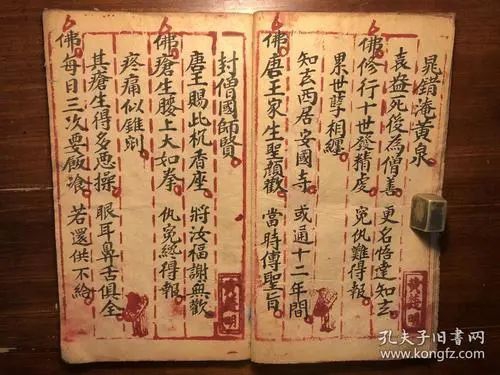 晁錯淹黃泉
袁盎死後為僧善 更名悟達知玄
佛修行十世發精虔 冤仇難得報
累世孽相纏
知玄西居安國寺 或通十二年間
佛唐王家生聖顏歡 當時傳聖旨
封僧國師賢
唐王賜此杌香座 將汝福謝與歡
佛瘡生腰上大如拳 仇冤總得報
疼痛似錐剜
其瘡生得多惡操 眼耳鼻舌俱全
佛每日三次要飯飡 若還供不給
孔夫子旧书网
www.kongfz.com